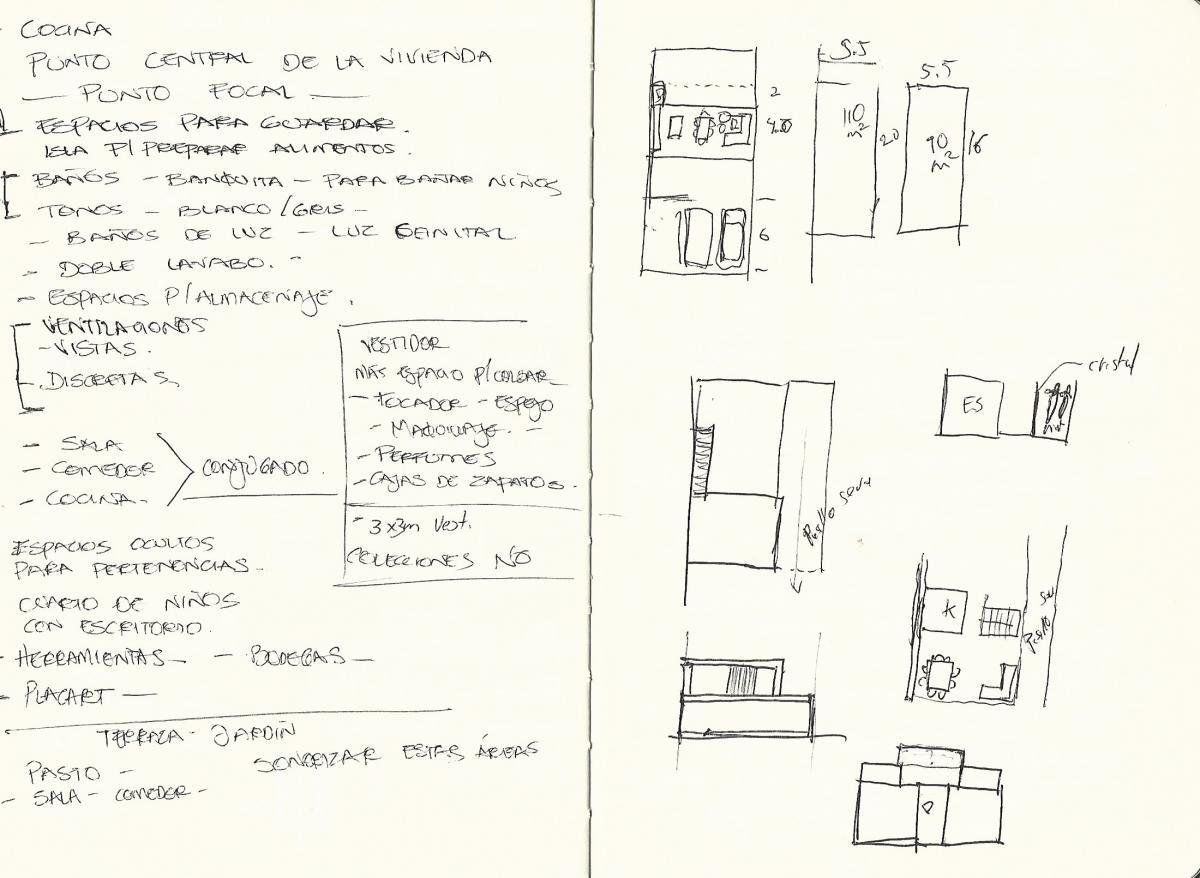 - COCINA
PUNTO CENTRAL DE LA VIVIENDA
— PUNTO FOCAL —
ESPACIOS PARA GUARDAR.
ISLA P/PREPARAR ALIMENTOS.
BAÑOS - BANQUITA - PARA BAÑAR NIÑOS
TONOS - BLANCO/GRIS -
- BAÑOS DE LUZ - LUZ
- DOBLE LAVABO. -
- ESPACIOS P/ALMACENAJE.
VENTILACIONES
- VISTAS.
- DISCRETAS,
- SALA
- COMEDOR
- COCINA -
CONJUGADO.
VESTIDOR
MÁS ESPACIO P/COLGAR
- TOCADOR - ESPEJO
- MAQUILLAJE. -
- PERFUMES
- CAJAS DE ZAPATOS.
- 3x3m Vest.
COLECCIONES NO
ESPACIOS OCULTOS
PARA PERTENENCIAS -
CUARTO DE NIÑOS
CON ESCRITORIO.
- HERRAMIENTAS - - BODEGAS -
- PLACART —
TERRAZA - JARDÍN
SONORIZAR ESTAS ÁREAS
PASTO -
- SALA - COMEDOR -
2
6
5.5
110 m²
20
5.5
90 m²
16
cristal
ES
Pasillo serv
K
Pasillo se